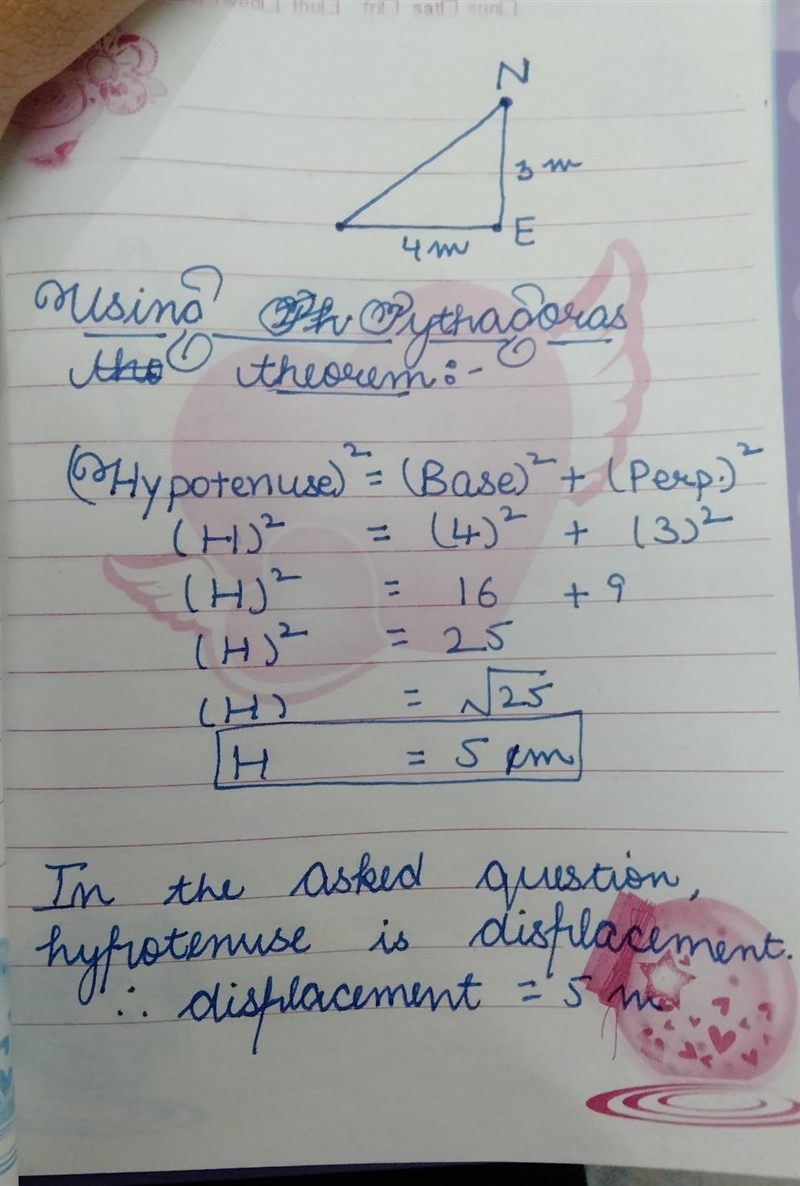 wed thu fri sat sun
N
3 m
4 m E
Using Pythagoras
theorem:-
(Hypotenuse)² = (Base)² + (Perp.)²
(H)² = (4)² + (3)²
(H)² = 16 + 9
(H)² = 25
(H) = √25
H = 5 m
In the asked question,
hypotenuse is displacement.
∴ displacement = 5 m